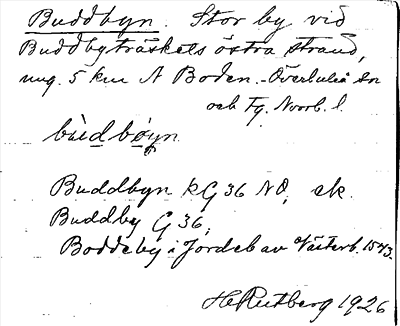 Buddbyn. Stor by vid
Buddbyträskets östra strand,
ung. 5 km N Boden. - Överluleå sn
och Fg. Norrb. l.
bùdbòyn
Buddbyn kG 36 NO, ek.
Buddby G 36,
Boddeby i Jordeb av Västerb. 1543.
H Rutberg 1926